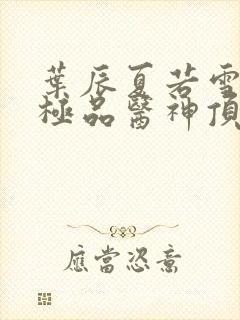 葉辰夏若雪
極品醫神頂
應當恣意